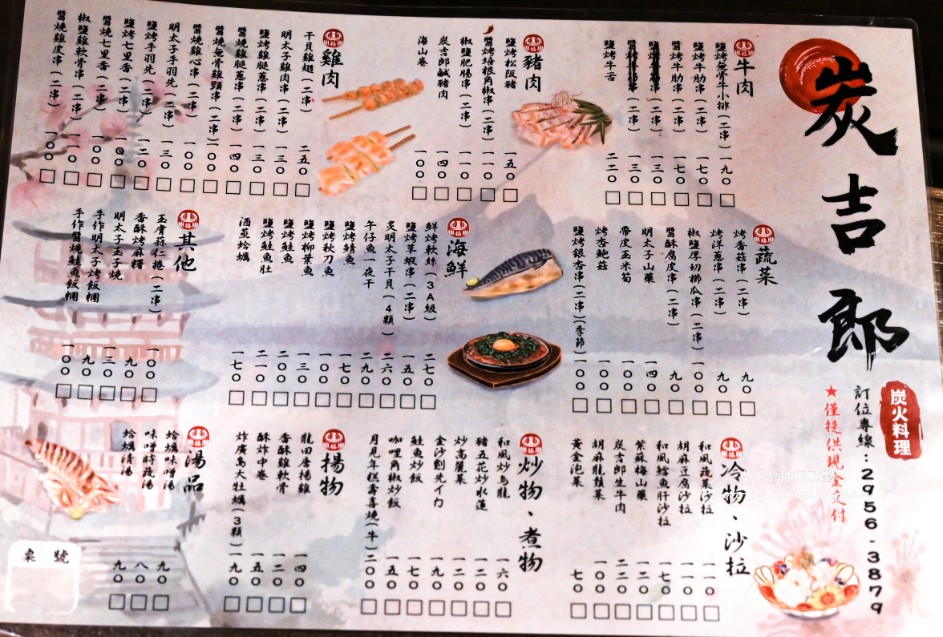 炭吉郎
炭火料理
訂位專線：2956-3879
★僅提供現金交付
牛肉
鹽烤無骨牛小排(二串) 一九〇
鹽烤牛肋(二串) 一七〇
醬烤牛肋(二串) 一七〇
(二串) 一三〇
(二串) 一三〇
鹽烤牛舌 二二〇
豬肉
鹽烤松阪豬 一五〇
醬烤培根角椒(二串) 一一〇
椒鹽肥腸串(二串) 一〇〇
炭吉郎鹹豬肉 一四〇
海山卷 一〇〇
雞肉
干貝雞翅(二串) 二五〇
明太子雞肉串(二串) 一三〇
鹽烤雞腿蔥串(二串) 一三〇
醬燒雞腿蔥串(二串) 一四〇
醬燒無骨雞頸串(二串) 一〇〇
醬燒雞心串(二串) 一〇〇
明太子手羽先(二串) 一三〇
鹽烤手羽先(二串) 一二〇
鹽烤七里香(二串) 一〇〇
醬燒七里香(二串) 一〇〇
椒鹽雞軟骨串(二串) 一〇〇
醬燒雞皮串(二串) 一〇〇
蔬菜
烤香菇串(二串) 九〇
烤洋蔥串(二串) 九〇
椒鹽厚切櫛瓜串(二串) 一〇〇
醬酥腐皮串(二串) 九〇
明太子山藥 一四〇
帶皮玉米筍 一〇〇
烤杏鮑菇 一〇〇
鹽烤銀杏串(二串)(季節) 一〇〇
海鮮
鮮烤軟絲(3A級) 二七〇
鹽烤草蝦串(二串) 一五〇
炙明太子干貝(4顆) 二六〇
午仔魚一夜干 二九〇
鹽烤鯖魚 一七〇
鹽烤秋刀魚 一〇〇
鹽烤柳葉魚 一三〇
鹽烤鮭魚 二〇〇
鹽烤鮭魚肚 二一〇
酒蒸蛤蠣 一七〇
其他
玉膚菻仁捲(二串) 一〇〇
香酥烤麻糬 九〇
明太子玉子燒 一三〇
手作明太子烤飯糰 九〇
手作醬燒鮭魚飯糰 一〇〇
冷物、沙拉
和風蔬菜沙拉 一一〇
胡麻豆腐沙拉 一一〇
和風鱈魚肝沙拉 一七〇
紫蘇梅山藥 一二〇
炭吉郎生牛肉 二二〇
胡麻龍鬚菜 一〇〇
黃金泡菜 七〇
炒物、煮物
和風炒烏龍 一六〇
豬五花炒水蓮 一二〇
炒高麗菜 一〇〇
金沙劍先イカ
鮭魚炒飯 一七〇
咖哩角椒炒飯 一五〇
月見年糕壽喜燒(牛) 二〇〇
揚物
龍田唐揚雞 一四〇
香酥雞軟骨 一二〇
酥炸中卷 一五〇
炸廣島大牡蠣(3顆) 一九〇
湯品
蛤蠣味噌湯 九〇
味噌時蔬湯 八〇
蛤蠣清湯 九〇
桌號